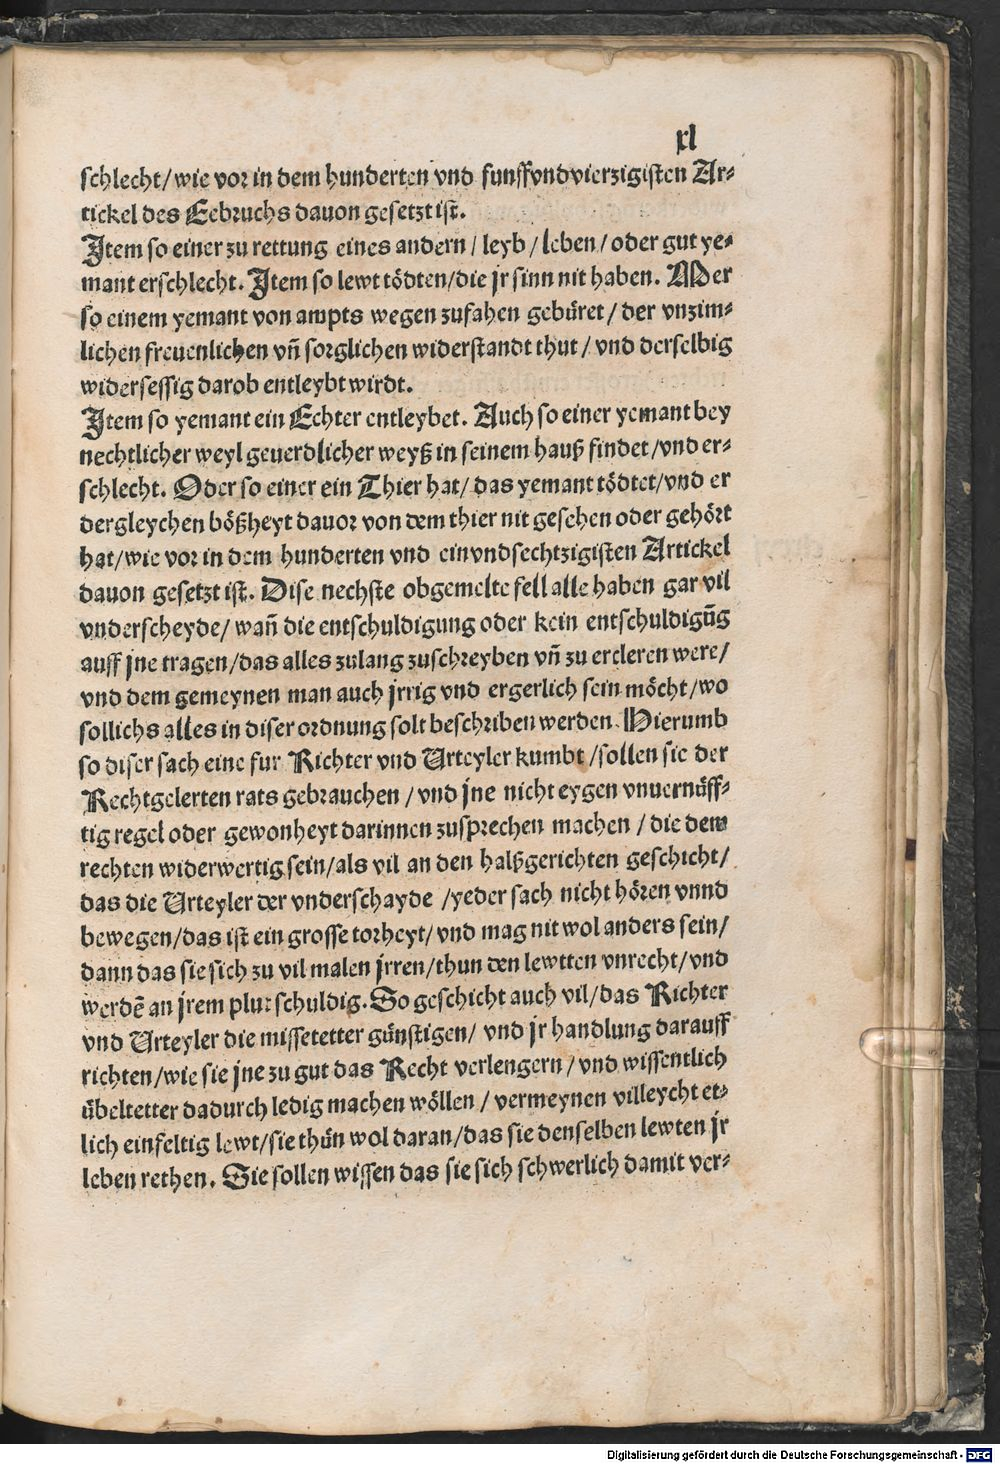 xl
schlecht/wie vor in dem hunderten vnd funffvndvierzigisten Ar⸗
tickel des Eebruchs dauon gesetzt ist.
Item so einer zu rettung eines andern/leyb/leben/oder gut ye⸗
mant erschlecht. Item so lewt tödten/die jr sinn nit haben. Mer
so einem yemant von ampts wegen zufahen gebüret/der vnzim⸗
lichen freuenlichen vñ sorglichen widerstandt thut/vnd derselbig
widersessig darob entleybt wirdt.
Item so yemant ein Echter entleybet. Auch so einer yemant bey
nechtlicher weyl geuerdlicher weyß in seinem hauß findet/vnd er⸗
schlecht. Oder so einer ein Thier hat/das yemant tödtet/vnd er
dergleychen bößheyt dauor von dem thier nit gesehen oder gehört
hat/wie vor in dem hunderten vnd einvndsechtzigisten Artickel
dauon gesetzt ist. Dise nechste obgemelte fell alle haben gar vil
vnderscheyde/wañ die entschuldigung oder kein entschuldigūg
auff jne tragen/das alles zulang zuschreyben vñ zu ercleren were/
vnd dem gemeynen man auch jrrig vnd ergerlich sein möcht/wo
sollichs alles in diser ordnung solt beschriben werden. Hierumb
so diser sach eine fur Richter vnd Urteyler kumbt/sollen sie der
Rechtgelerten rats gebrauchen/vnd jne nicht eygen vnuernüff⸗
tig regel oder gewonheyt darinnen zusprechen machen/die dem
rechten widerwertig sein/als vil an den halßgerichten geschicht/
das die Urteyler der vnderschayde/yeder sach nicht hören vnnd
bewegen/das ist ein grosse torheyt/vnd mag nit wol anders sein/
dann das sie sich zu vil malen jrren/thun den lewtten vnrecht/vnd
werdē an jrem plut schuldig. So geschicht auch vil/das Richter
vnd Urteyler die missetetter günstigen/vnd jr handlung darauff
richten/wie sie jne zu gut das Recht verlengern/vnd wissentlich
übeltetter dadurch ledig machen wöllen/vermeynen villeycht et⸗
lich einfeltig lewt/sie thün wol daran/das sie denselben lewten jr
leben rethen. Sie sollen wissen das sie sich schwerlich damit ver⸗
Digitalisierung gefördert durch die Deutsche Forschungsgemeinschaft - DFG